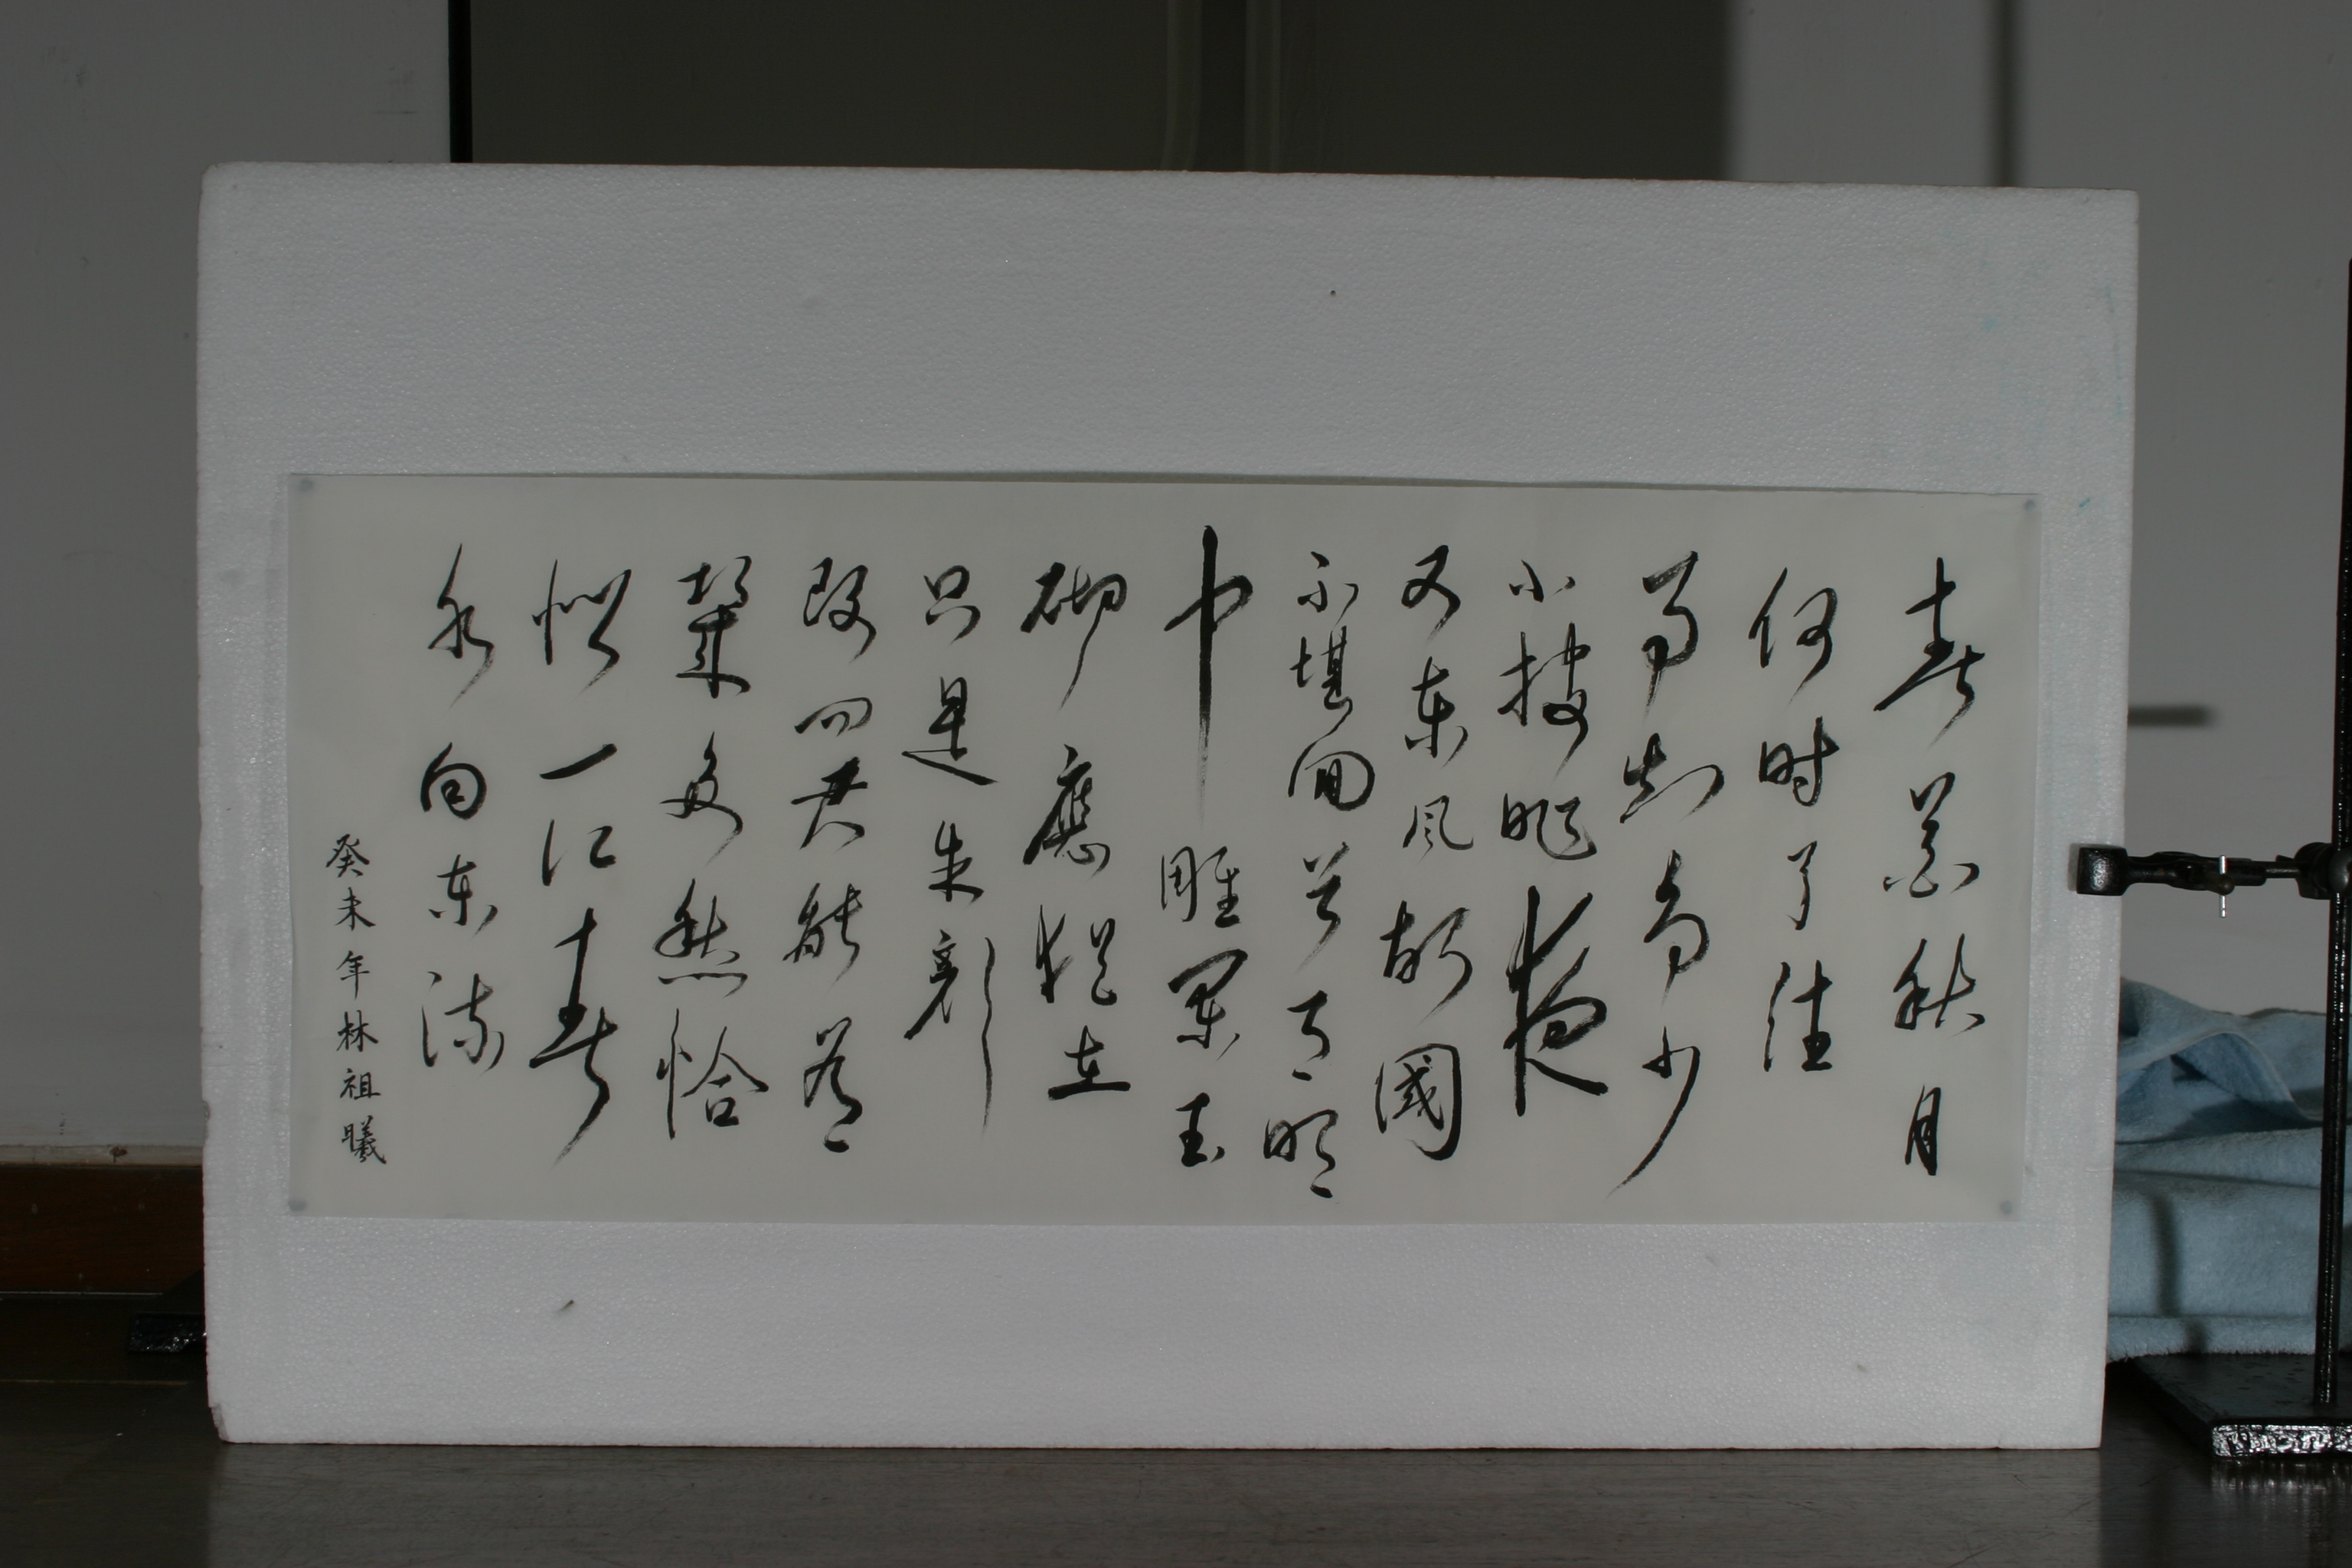 春花秋月
何时了往
事知多少
小樓昨夜
又東風故國
不堪回首月明
中雕闌玉
砌應猶在
只是朱顏
改問君能有
幾多愁恰
似一江春
水向東流
癸未年林祖曦